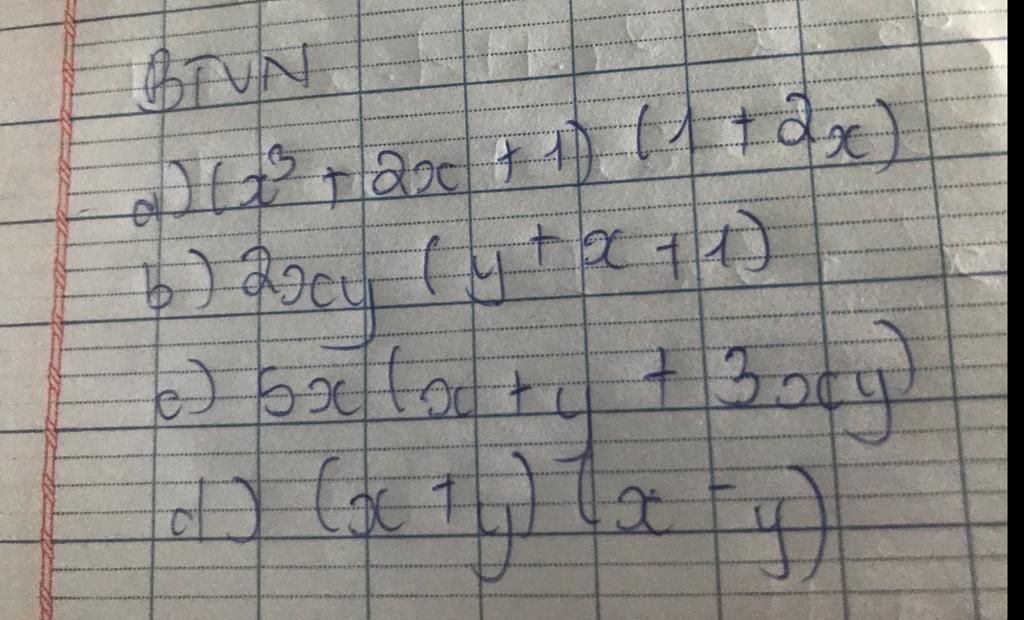 BTVN
a) (x³ + 2x + 1) (1 + 2x)
b) 2xy (y + x + 1)
c) 5x (x + y + 3xy)
d) (x + y) (x - y)